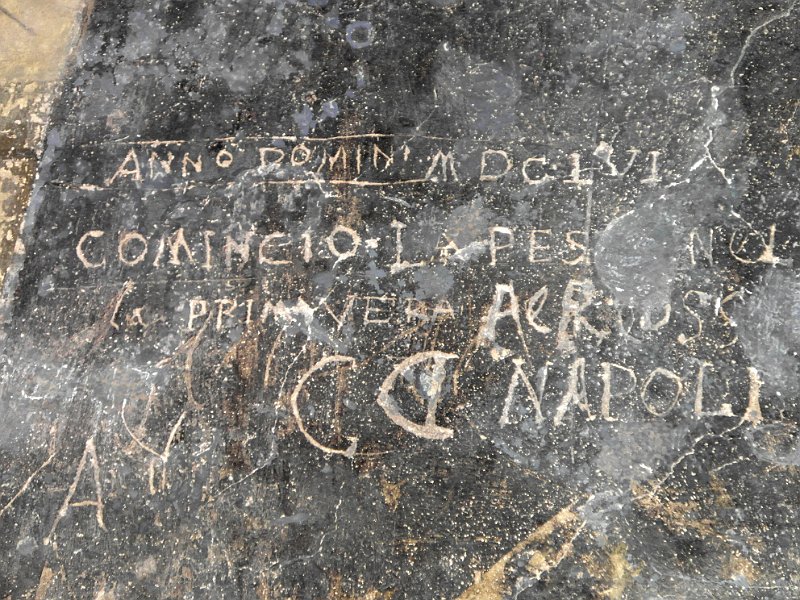 ANNO DOMINI MDCLVI
COMINCIO LA PES NUL
la PRIMAVERA
NAPOLI
A